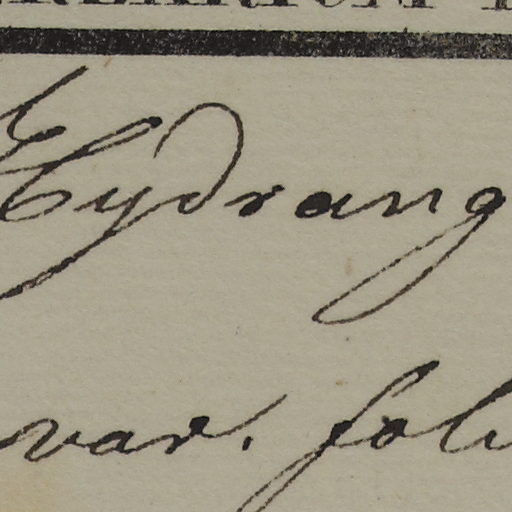 Hydrang
var. foli